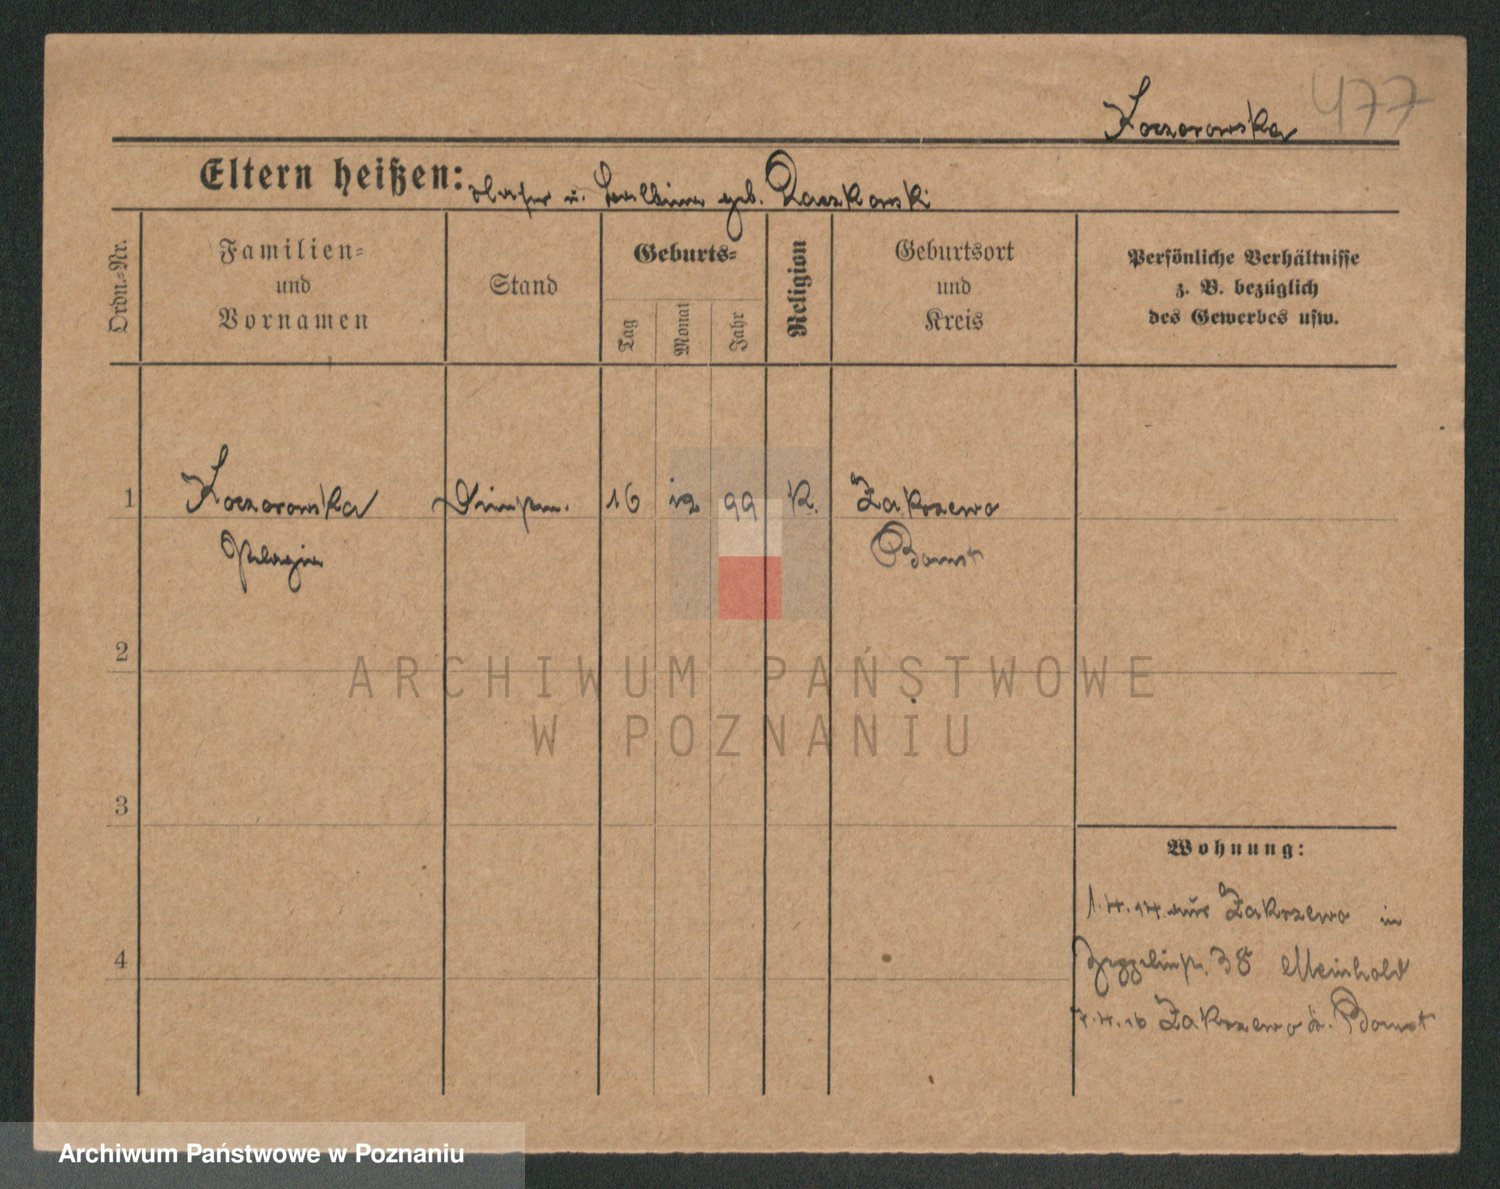 Koczorowska 477
Eltern heißen: u. Balbina geb. Raczkowski
Ordn.-Nr.
Familien-
und
Vornamen
Stand
Geburts-
Tag
Monat
Jahr
Religion
Geburtsort
und
Kreis
Persönliche Verhältnisse
z. B. bezüglich
des Gewerbes usw.
1 Koczorowska 16 12 99 K. Zakrzewo
Pelagia Bomst
2
3
4
Wohnung:
1.4.14 aus Zakrzewo in
Zeppelinstr. 38 Meinhold
7.4.16 Zakrzewo k. Bomst
ARCHIWUM PAŃSTWOWE
W POZNANIU
Archiwum Państwowe w Poznaniu